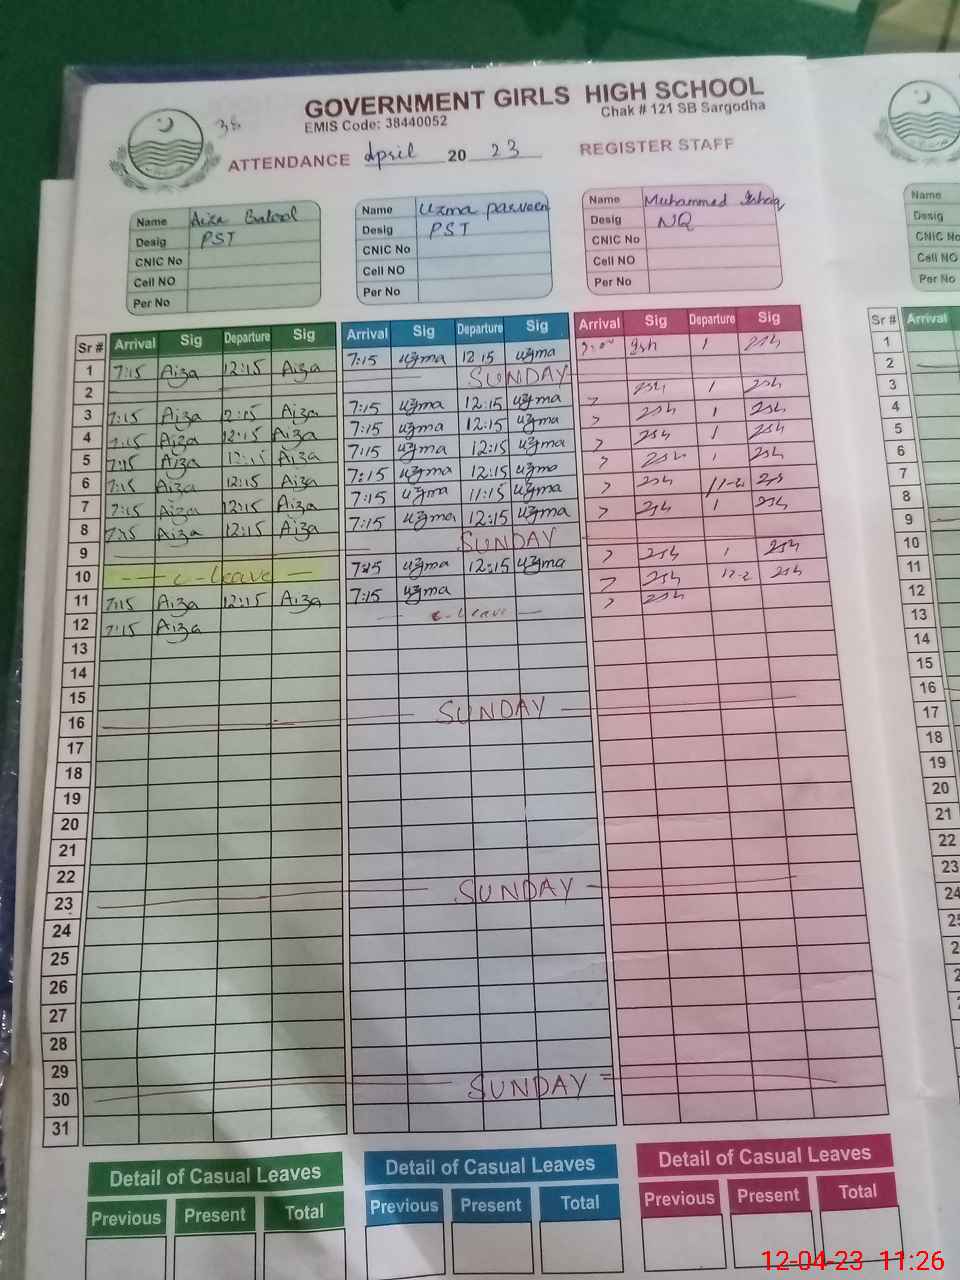 GOVERNMENT GIRLS HIGH SCHOOL
EMIS Code: 38440052
Chak # 121 SB Sargodha
38
ATTENDANCE April 20 23 REGISTER STAFF
Name Aiza Batool
Desig PST
CNIC No
Cell NO
Per No
Name Uzma parveen
Desig PST
CNIC No
Cell NO
Per No
Name Muhammed Ishaq
Desig NQ
CNIC No
Cell NO
Per No
Name
Desig
CNIC No
Cell NO
Per No
Sr # Arrival Sig Departure Sig Arrival Sig Departure Sig Arrival Sig Departure Sig Sr # Arrival
1 7:15 Aiza 12:15 Aiza 7:15 uzma 12 15 uzma 1 1
2 SUNDAY 2
3 7:15 Aiza 12:15 Aiza 7:15 uzma 12:15 uzma 1 3
4 7:15 Aiza 12:15 Aiza 7:15 uzma 12:15 uzma 1 4
5 7:15 Aiza 12:15 Aiza 7:15 uzma 12:15 uzma 1 5
6 7:15 Aiza 12:15 Aiza 7:15 uzma 12:15 uzma 1 6
7 7:15 Aiza 12:15 Aiza 7:15 uzma 11:15 uzma 7
8 7:15 Aiza 12:15 Aiza 7:15 uzma 12:15 uzma 1 8
9 SUNDAY 9
10 c-leave 7:15 uzma 12:15 uzma 1 10
11 7:15 Aiza 12:15 Aiza 7:15 uzma 11
12 7:15 Aiza c-leave 12
13 13
14 14
15 15
16 SUNDAY 16
17 17
18 18
19 19
20 20
21 21
22 22
23 SUNDAY 23
24 24
25
26
27
28
29
30 SUNDAY
31
Detail of Casual Leaves Detail of Casual Leaves Detail of Casual Leaves
Previous Present Total Previous Present Total Previous Present Total
12-04-23 11:26